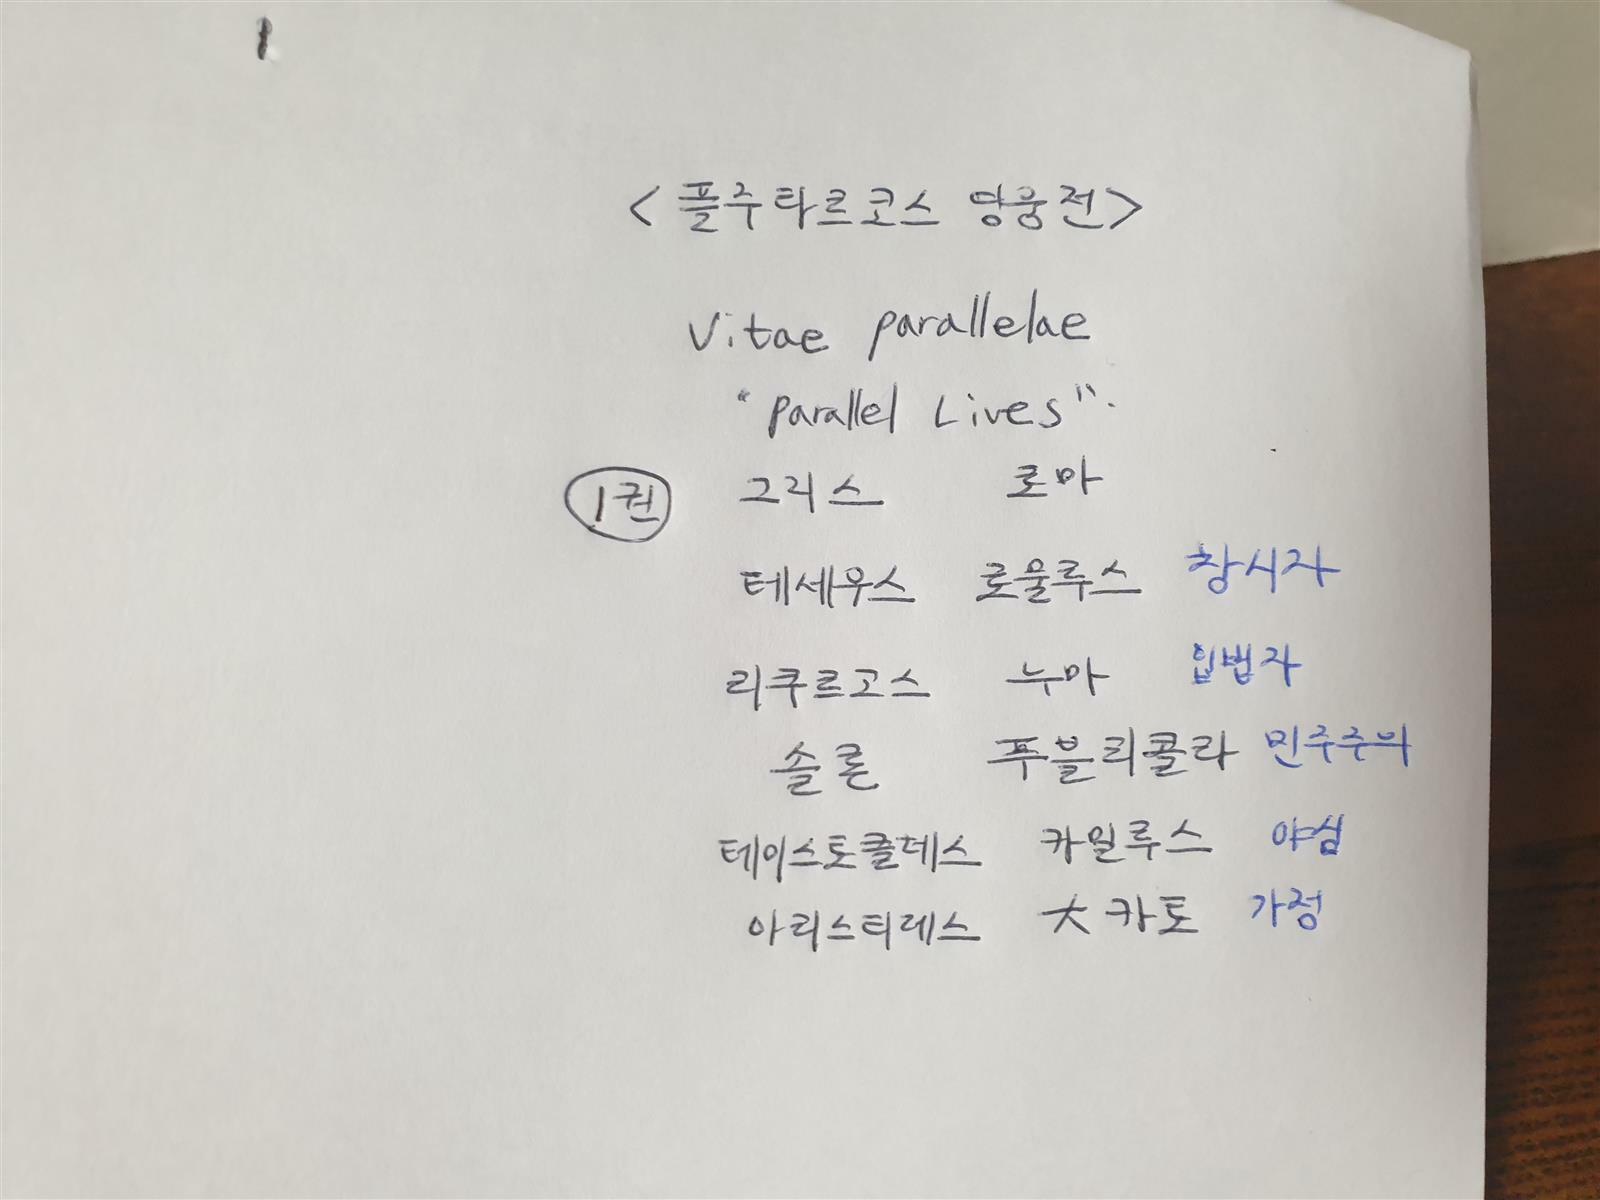 <플주타르코스 영웅전>
Vitae parallelae
"parallel Lives".
1권 그리스 로마
테세우스 로물루스 창시자
리쿠르고스 누마 입법자
솔론 푸블리콜라 민주주의
테이스토클데스 카밀루스 야심
아리스티데스 大카토 가정